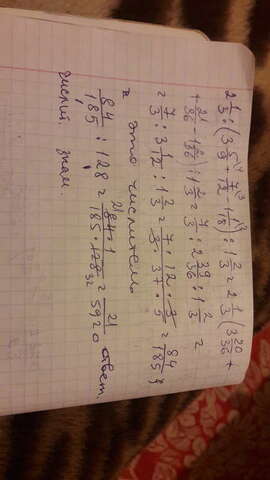 2 1/3 : (3 5/9 + 7/12 - 1 1/18) : 1 2/3 = 2 1/3 (3 20/36 +
+ 21/36 - 1 2/36) : 1 2/3 = 7/3 : 2 39/36 : 1 2/3 =
= 7/3 : 3 1/12 : 1 2/3 = 7/3 · 12/37 · 3/5 = 84/185 }
это числитель
84/185 : 128 = 84·1/185·128 = 21/5920 ответ.
числит. знам.